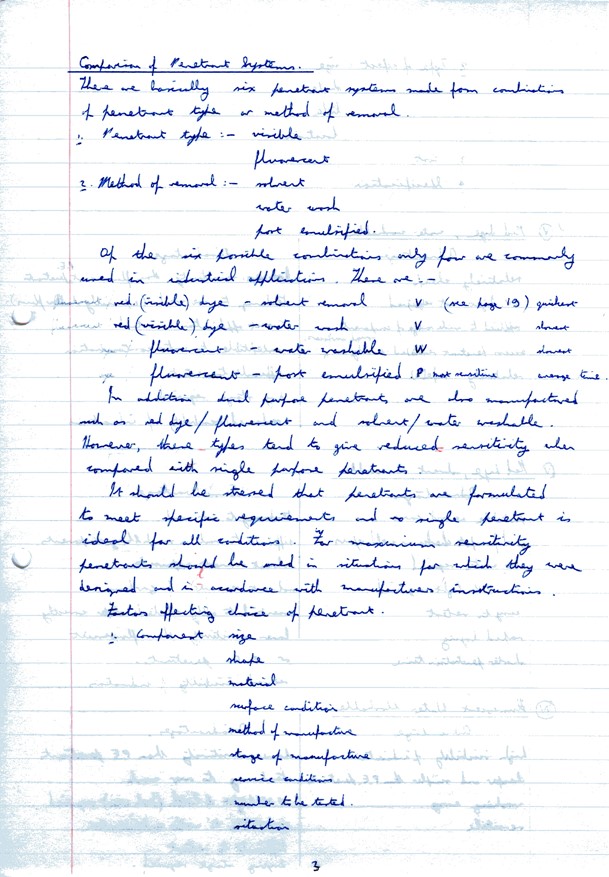 Comparison of Penetrant Systems.
There are basically six penetrant systems made from combinations
of penetrant type or method of removal.
1. Penetrant type :- visible
fluorescent
2. Method of removal :- solvent
water wash
post emulsified.
Of the six possible combinations only four are commonly
used in industrial applications. These are :-
red (visible) dye - solvent removal V (see page 19) quickest
red (visible) dye - water wash V slowest
fluorescent - water washable W slowest
fluorescent - post emulsified. P most sensitive average time.
In addition dual purpose penetrants are also manufactured
such as red dye / fluorescent and solvent / water washable.
However, these types tend to give reduced sensitivity when
compared with single purpose penetrants.
It should be stressed that penetrants are formulated
to meet specific requirements and no single penetrant is
ideal for all conditions. For maximum sensitivity
penetrants should be used in situations for which they were
designed and in accordance with manufacturers instructions.
Factors affecting choice of penetrant.
1. Component size
shape
material
surface condition
method of manufacture
stage of manufacture
service conditions
number to be tested.
situation
3